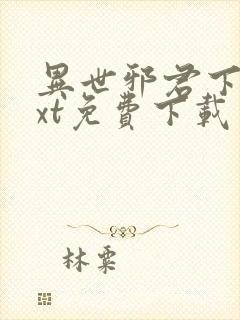 異世邪君下
xt免費下載
林粟